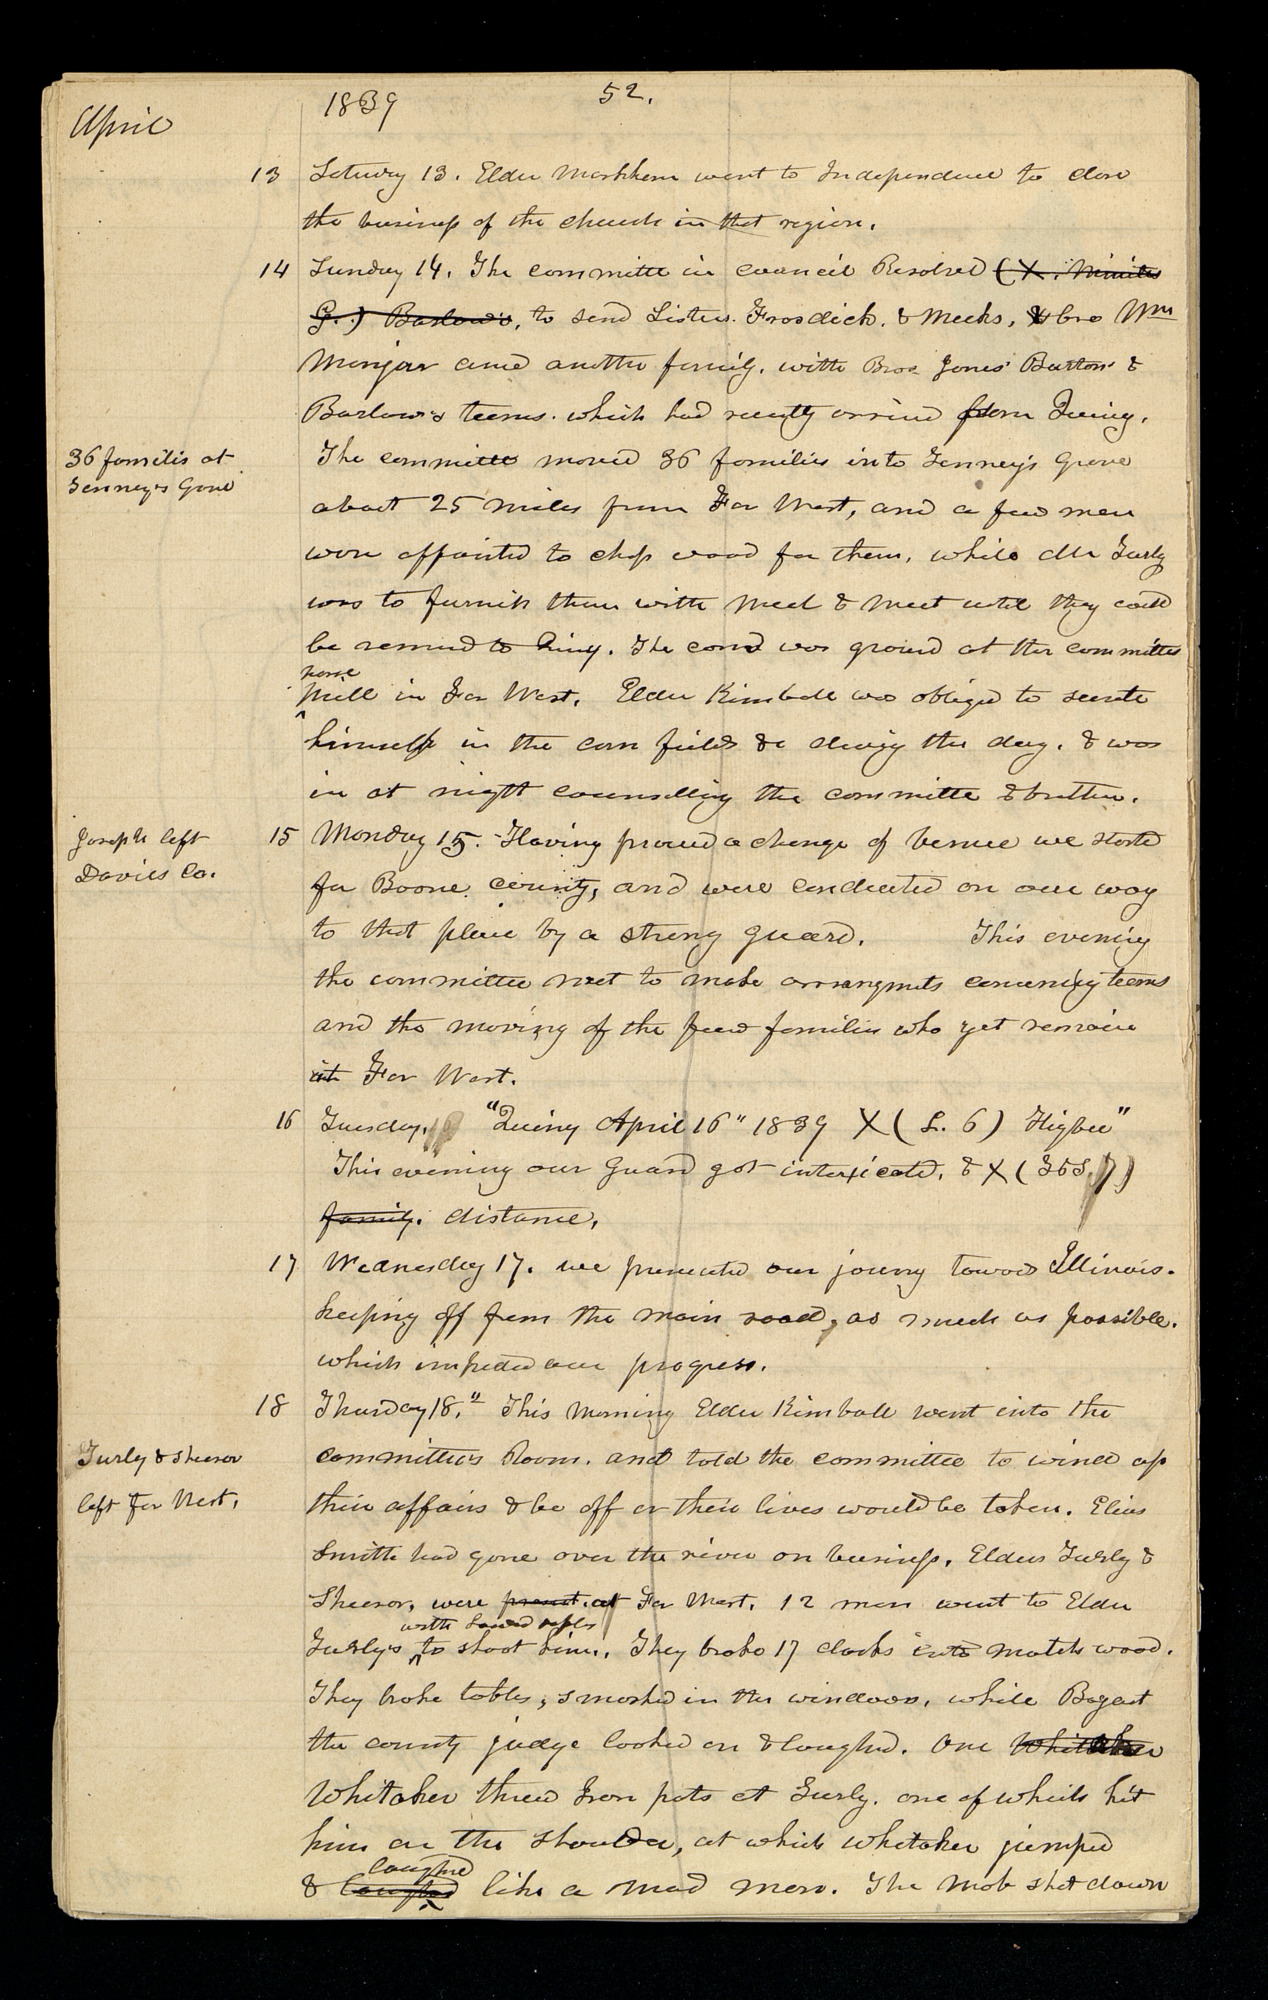 April
1839
52.
13 Saturday 13. Elder Markham went to Independence to close
the business of the church in that region.
14 Sunday 14. The committee in council Resolved (X. Minutes
G.) Barlow's, to send Sisters. Fosdick. & Meeks, & bro Wm
Monjar and another family. with Bros Jones' Burton' &
Barlow's teams. which had recently arrived from Quincy.
36 families at
Tenney's Grove
The committee moved 36 families into Tenney's Grove
about 25 miles from Far West, and a few men
were appointed to chop wood for them, while Mr Turly
was to furnish them with meal & meat until they could
be removed to Quincy. The corn was ground at the committes
horse
mill in Far West. Elder Kimball was obliged to secrete
himself in the corn fields &c during the day. & was
in at night counselling the committe & brethren.
Joseph left
Davies Co.
15 Monday 15. Having procured a change of venue we started
for Boone county, and were conducted on our way
to that place by a strong guard. This evening
the committee met to make arrangments concerning teams
and the moving of the few families who yet remain
in Far West.
16 Tuesday, 16 "Quincy April 16" 1839 X (L. 6) Higbee"
This evening our Guard got intoxicated, & X (365. 7)
family. distance.
17 Wednesday 17. we prosecuted our journy toward Illinois.
keeping off from the main road, as much as possible.
which impeded our progress.
18 Thursday 18." This morning Elder Kimball went into the
Turly & Shearer
left Far West.
committee's Room. and told the committee to wind up
their affairs & be off or their lives would be taken. Elias
Smith had gone over the river on business. Elders Turly &
Shearer, were present. at Far West. 12 men went to Elder
with loaded rifles
Turly's to shoot him. They broke 17 clocks into match wood.
They broke tables, smashed in the windows, while Bogart
the county judge looked on & laughed. One Whitaker
Whitaker threw Iron pots at Turly. one of which hit
him on the shoulder, at which Whitaker jumped
laughed
& laughed like a mad man. The mob shot down